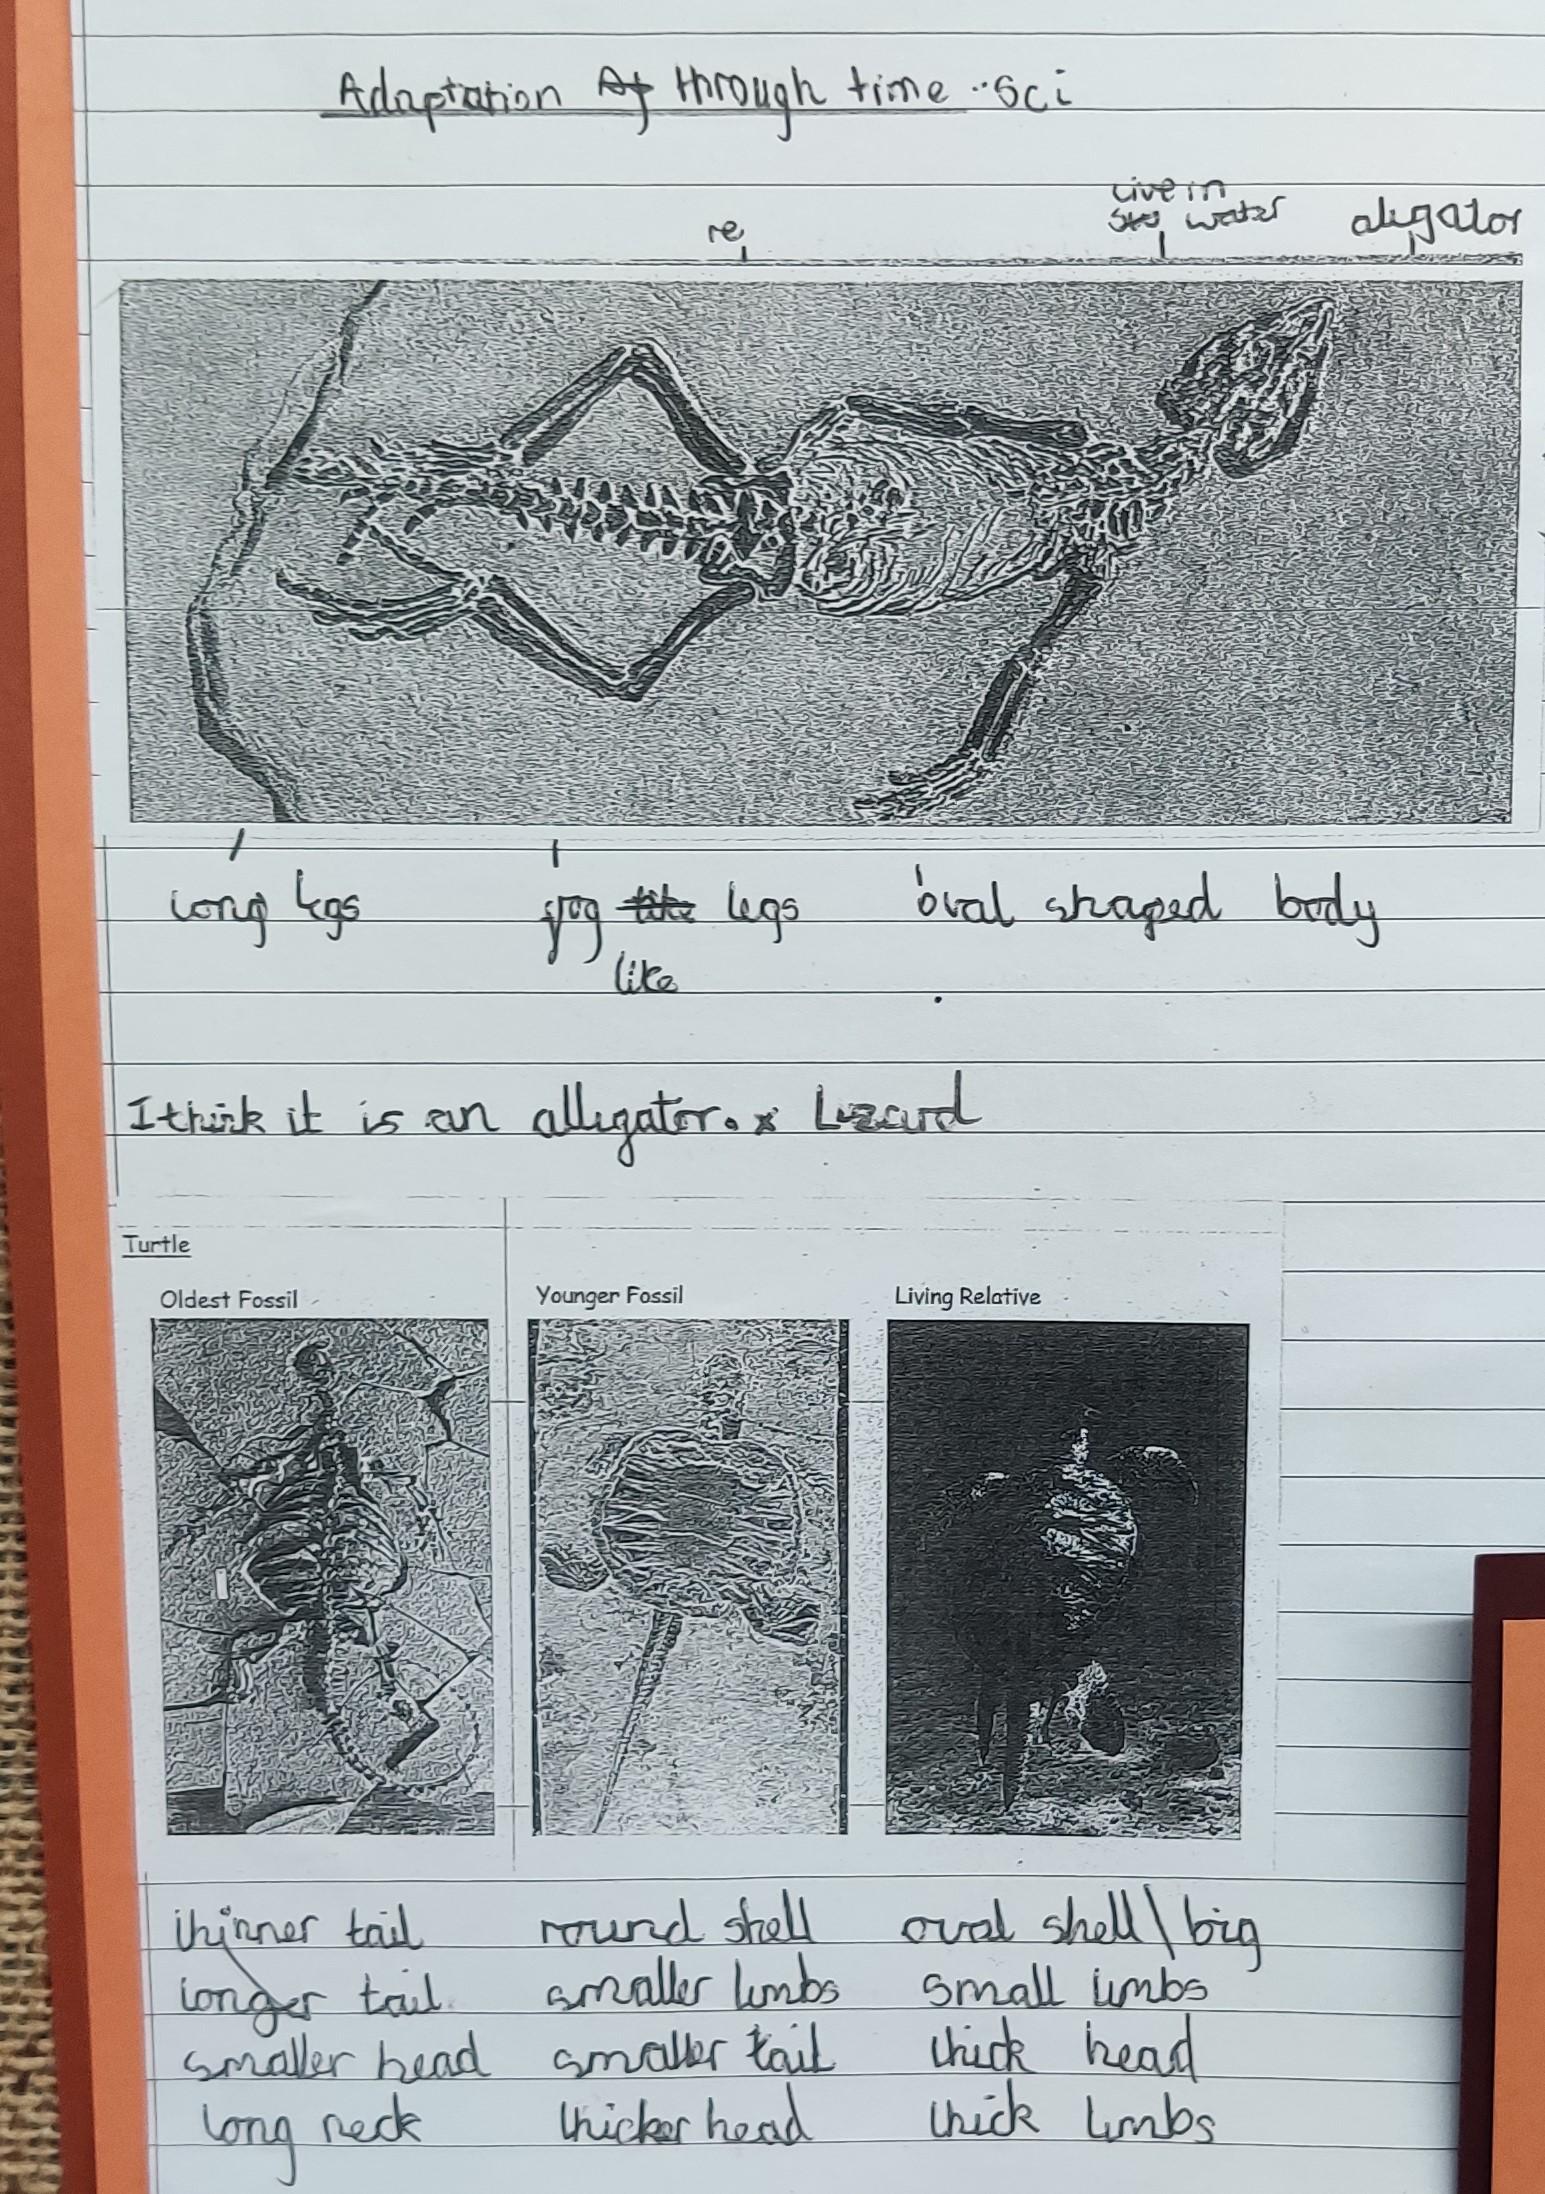 Adaptation Af through time - sci
re
Live in
sky water
aligator
long legs
frog like legs
like
oval shaped body
I think it is an alligator. x Lizard
Turtle
Oldest Fossil
Younger Fossil
Living Relative
thinner tail round shell oval shell\big
longer tail smaller limbs small limbs
smaller head smaller tail thick head
long neck thicker head thick limbs